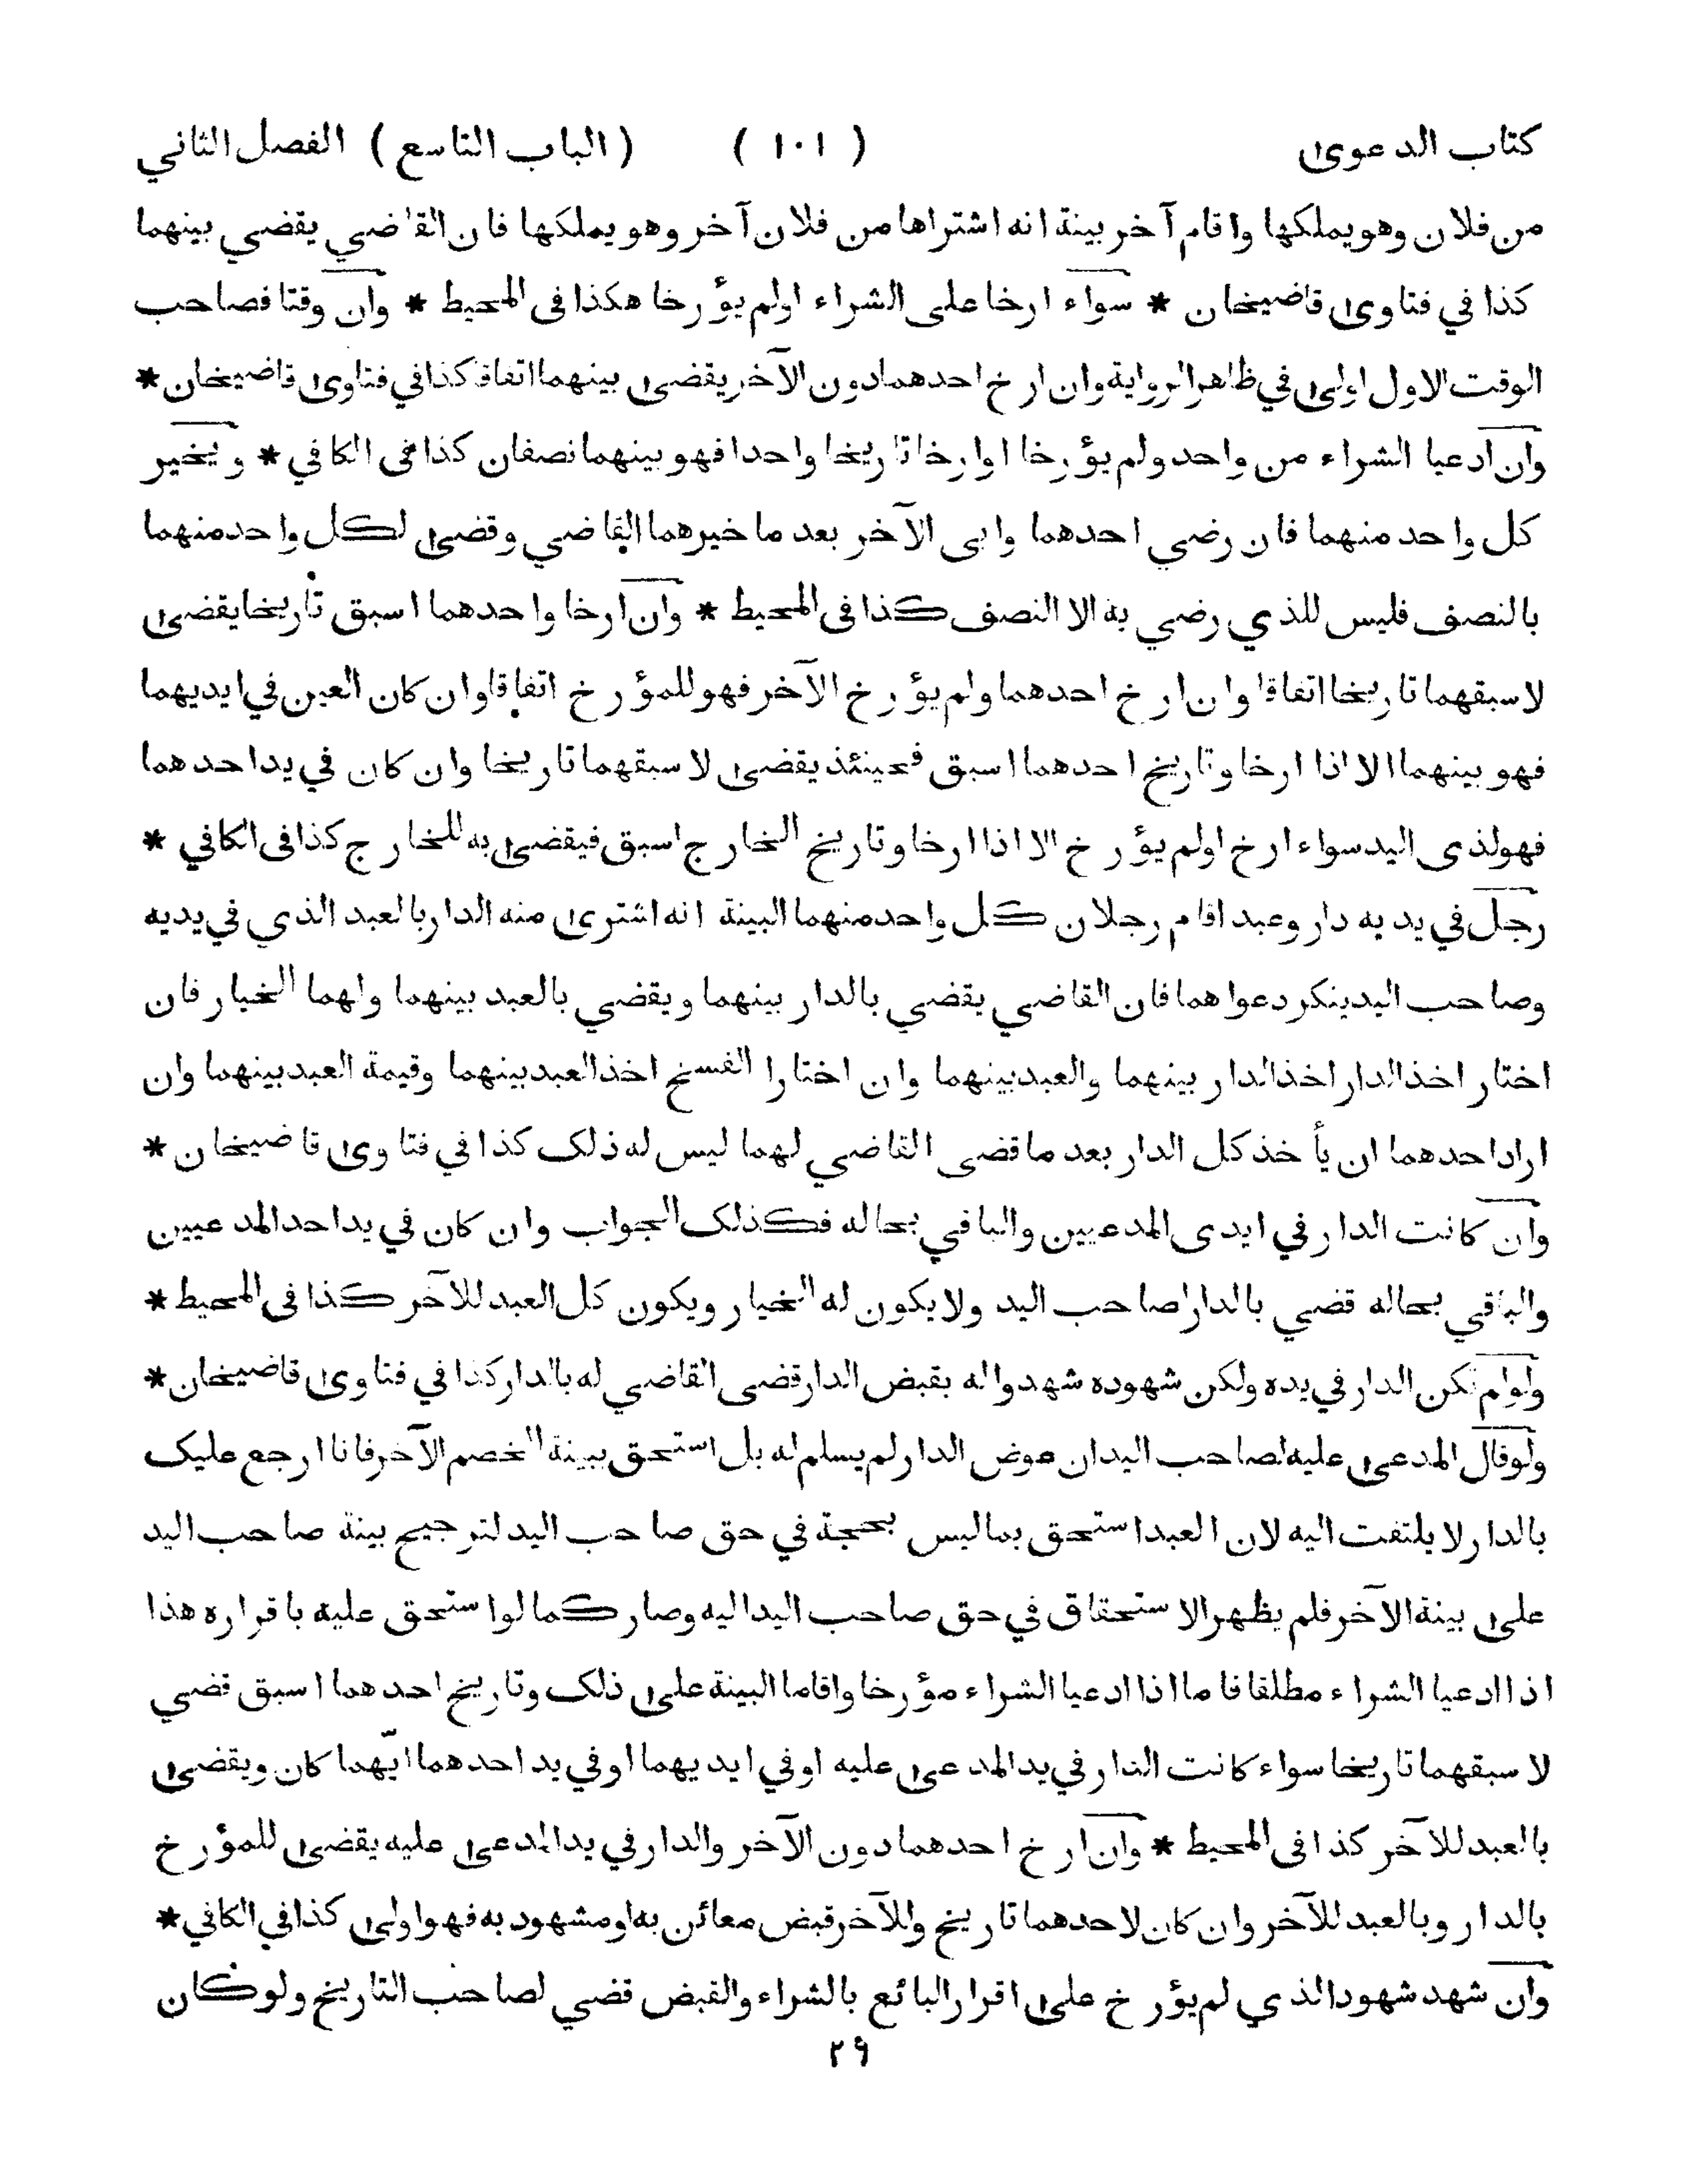 كتاب الدعوى ( ١٠١ ) ( الباب التاسع ) الفصل الثاني
من فلان وهو يملكها واقام آخر بينة انه اشتراها من فلان آخر وهو يملكها فان القاضي يقضي بينهما
كذا في فتاوى قاضيخان * سواء ارخا على الشراء اولم يؤرخا هكذا فى المحيط * وان وقتا فصاحب
الوقت الاول اولى في ظاهر الرواية وان ارخ احدهما دون الآخر يقضى بينهما اتفاقا كذا في فتاوى قاضيخان *
وان ادعيا الشراء من واحد ولم يؤرخا او ارخا تاريخا واحدا فهو بينهما نصفان كذا فى الكافي * ويخير
كل واحد منهما فان رضي احدهما وابى الآخر بعد ما خيرهما القاضي وقضى لكل واحد منهما
بالنصف فليس للذي رضي به الا النصف كذا فى المحيط * وان ارخا واحدهما اسبق تاريخا يقضى
لاسبقهما تاريخا اتفاقا وان ارخ احدهما ولم يؤرخ الآخر فهو للمؤرخ اتفاقا وان كان العين في ايديهما
فهو بينهما الا اذا ارخا وتاريخ احدهما اسبق فحينئذ يقضى لاسبقهما تاريخا وان كان في يد احدهما
فهو لذى اليد سواء ارخ اولم يؤرخ الا اذا ارخا وتاريخ الخارج اسبق فيقضى به للخارج كذا فى الكافي *
رجل في يديه دار وعبد اقام رجلان كل واحد منهما البينة انه اشترى منه الدار بالعبد الذي في يديه
وصاحب اليد ينكر دعواهما فان القاضي يقضي بالدار بينهما ويقضي بالعبد بينهما ولهما الخيار فان
اختار اخذ الدار اخذ الدار بينهما والعبد بينهما وان اختارا الفسخ اخذ العبد بينهما وقيمة العبد بينهما وان
اراد احدهما ان يأخذ كل الدار بعد ما قضى القاضي لهما ليس له ذلك كذا في فتاوى قاضيخان *
وان كانت الدار في ايدى المدعيين والباقي بحاله فكذلك الجواب وان كان في يد احد المدعيين
والباقي بحاله قضي بالدار لصاحب اليد ولا يكون له الخيار ويكون كل العبد للآخر كذا فى المحيط *
ولو لم تكن الدار في يده ولكن شهوده شهدوا له بقبض الدار قضى القاضي له بالدار كذا في فتاوى قاضيخان *
ولو قال المدعى عليه لصاحب اليد ان عوض الدار لم يسلم له بل استحق ببينة الخصم الآخر فانا ارجع عليك
بالدار لا يلتفت اليه لان العبد استحق بما ليس بحجة في حق صاحب اليد لترجيح بينة صاحب اليد
على بينة الآخر فلم يظهر الاستحقاق في حق صاحب اليد اليه وصار كما لو استحق عليه باقراره هذا
اذا ادعيا الشراء مطلقا فاما اذا ادعيا الشراء مؤرخا واقاما البينة على ذلك وتاريخ احدهما اسبق قضي
لاسبقهما تاريخا سواء كانت الدار في يد المدعى عليه او في ايديهما او في يد احدهما ايّهما كان ويقضى
بالعبد للآخر كذا فى المحيط * وان ارخ احدهما دون الآخر والدار في يد المدعى عليه يقضى للمؤرخ
بالدار وبالعبد للآخر وان كان لاحدهما تاريخ وللآخر قبض معائن به او مشهود به فهو اولى كذا في الكافي *
وان شهد شهود الذي لم يؤرخ على اقرار البائع بالشراء والقبض قضي لصاحب التاريخ ولو كان
٢٩